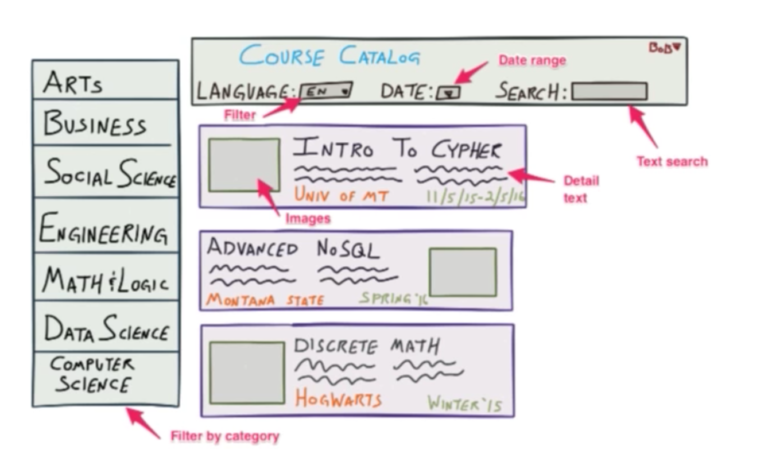 COURSE CATALOG
BOB
LANGUAGE: EN DATE: SEARCH:
Date range
Filter
Text search
ARTS
BUSINESS
SOCIAL SCIENCE
ENGINEERING
MATH & LOGIC
DATA SCIENCE
COMPUTER
SCIENCE
Filter by category
INTRO TO CYPHER
UNIV OF MT 11/5/15-2/5/16
Images
Detail
text
ADVANCED NOSQL
MONTANA STATE SPRING '16
DISCRETE MATH
HOGWARTS WINTER '15